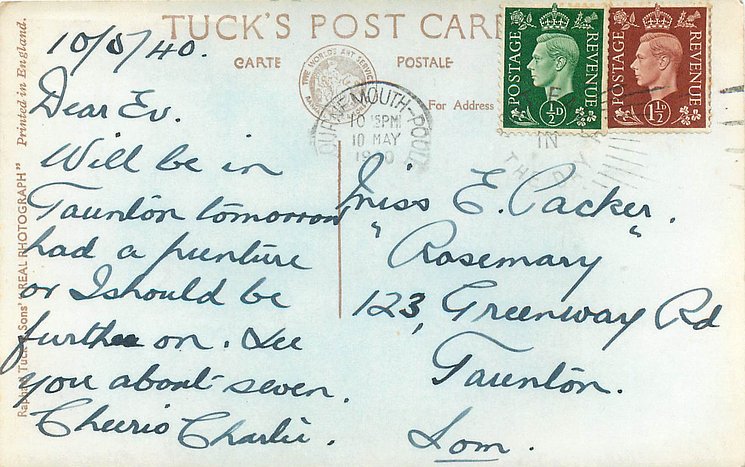 TUCK'S POST CARD
CARTE POSTALE
For Address
Printed in England.
Raphael Tuck & Sons' "REAL PHOTOGRAPH"
THE WORLD'S ART SERVICE
BOURNEMOUTH-POOLE
10 15PM
10 MAY
1940
POSTAGE REVENUE
½D
POSTAGE REVENUE
1½D
IN
THE
10/5/40.
Dear Ev.
Will be in
Taunton tomorrow,
had a punture
or I should be
further on. See
you about seven.
Cheerio Charlie.
Miss E. Packer.
"Rosemary"
123, Greenway Rd
Taunton.
Som.